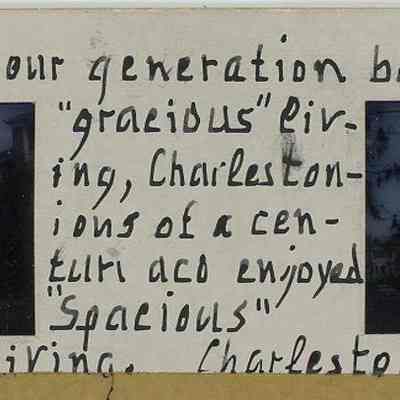 our generation
"gracious" liv-
ing, Charleston-
ions of a cen-
tury ago enjoyed
"Spacious"
iving. Charlesto